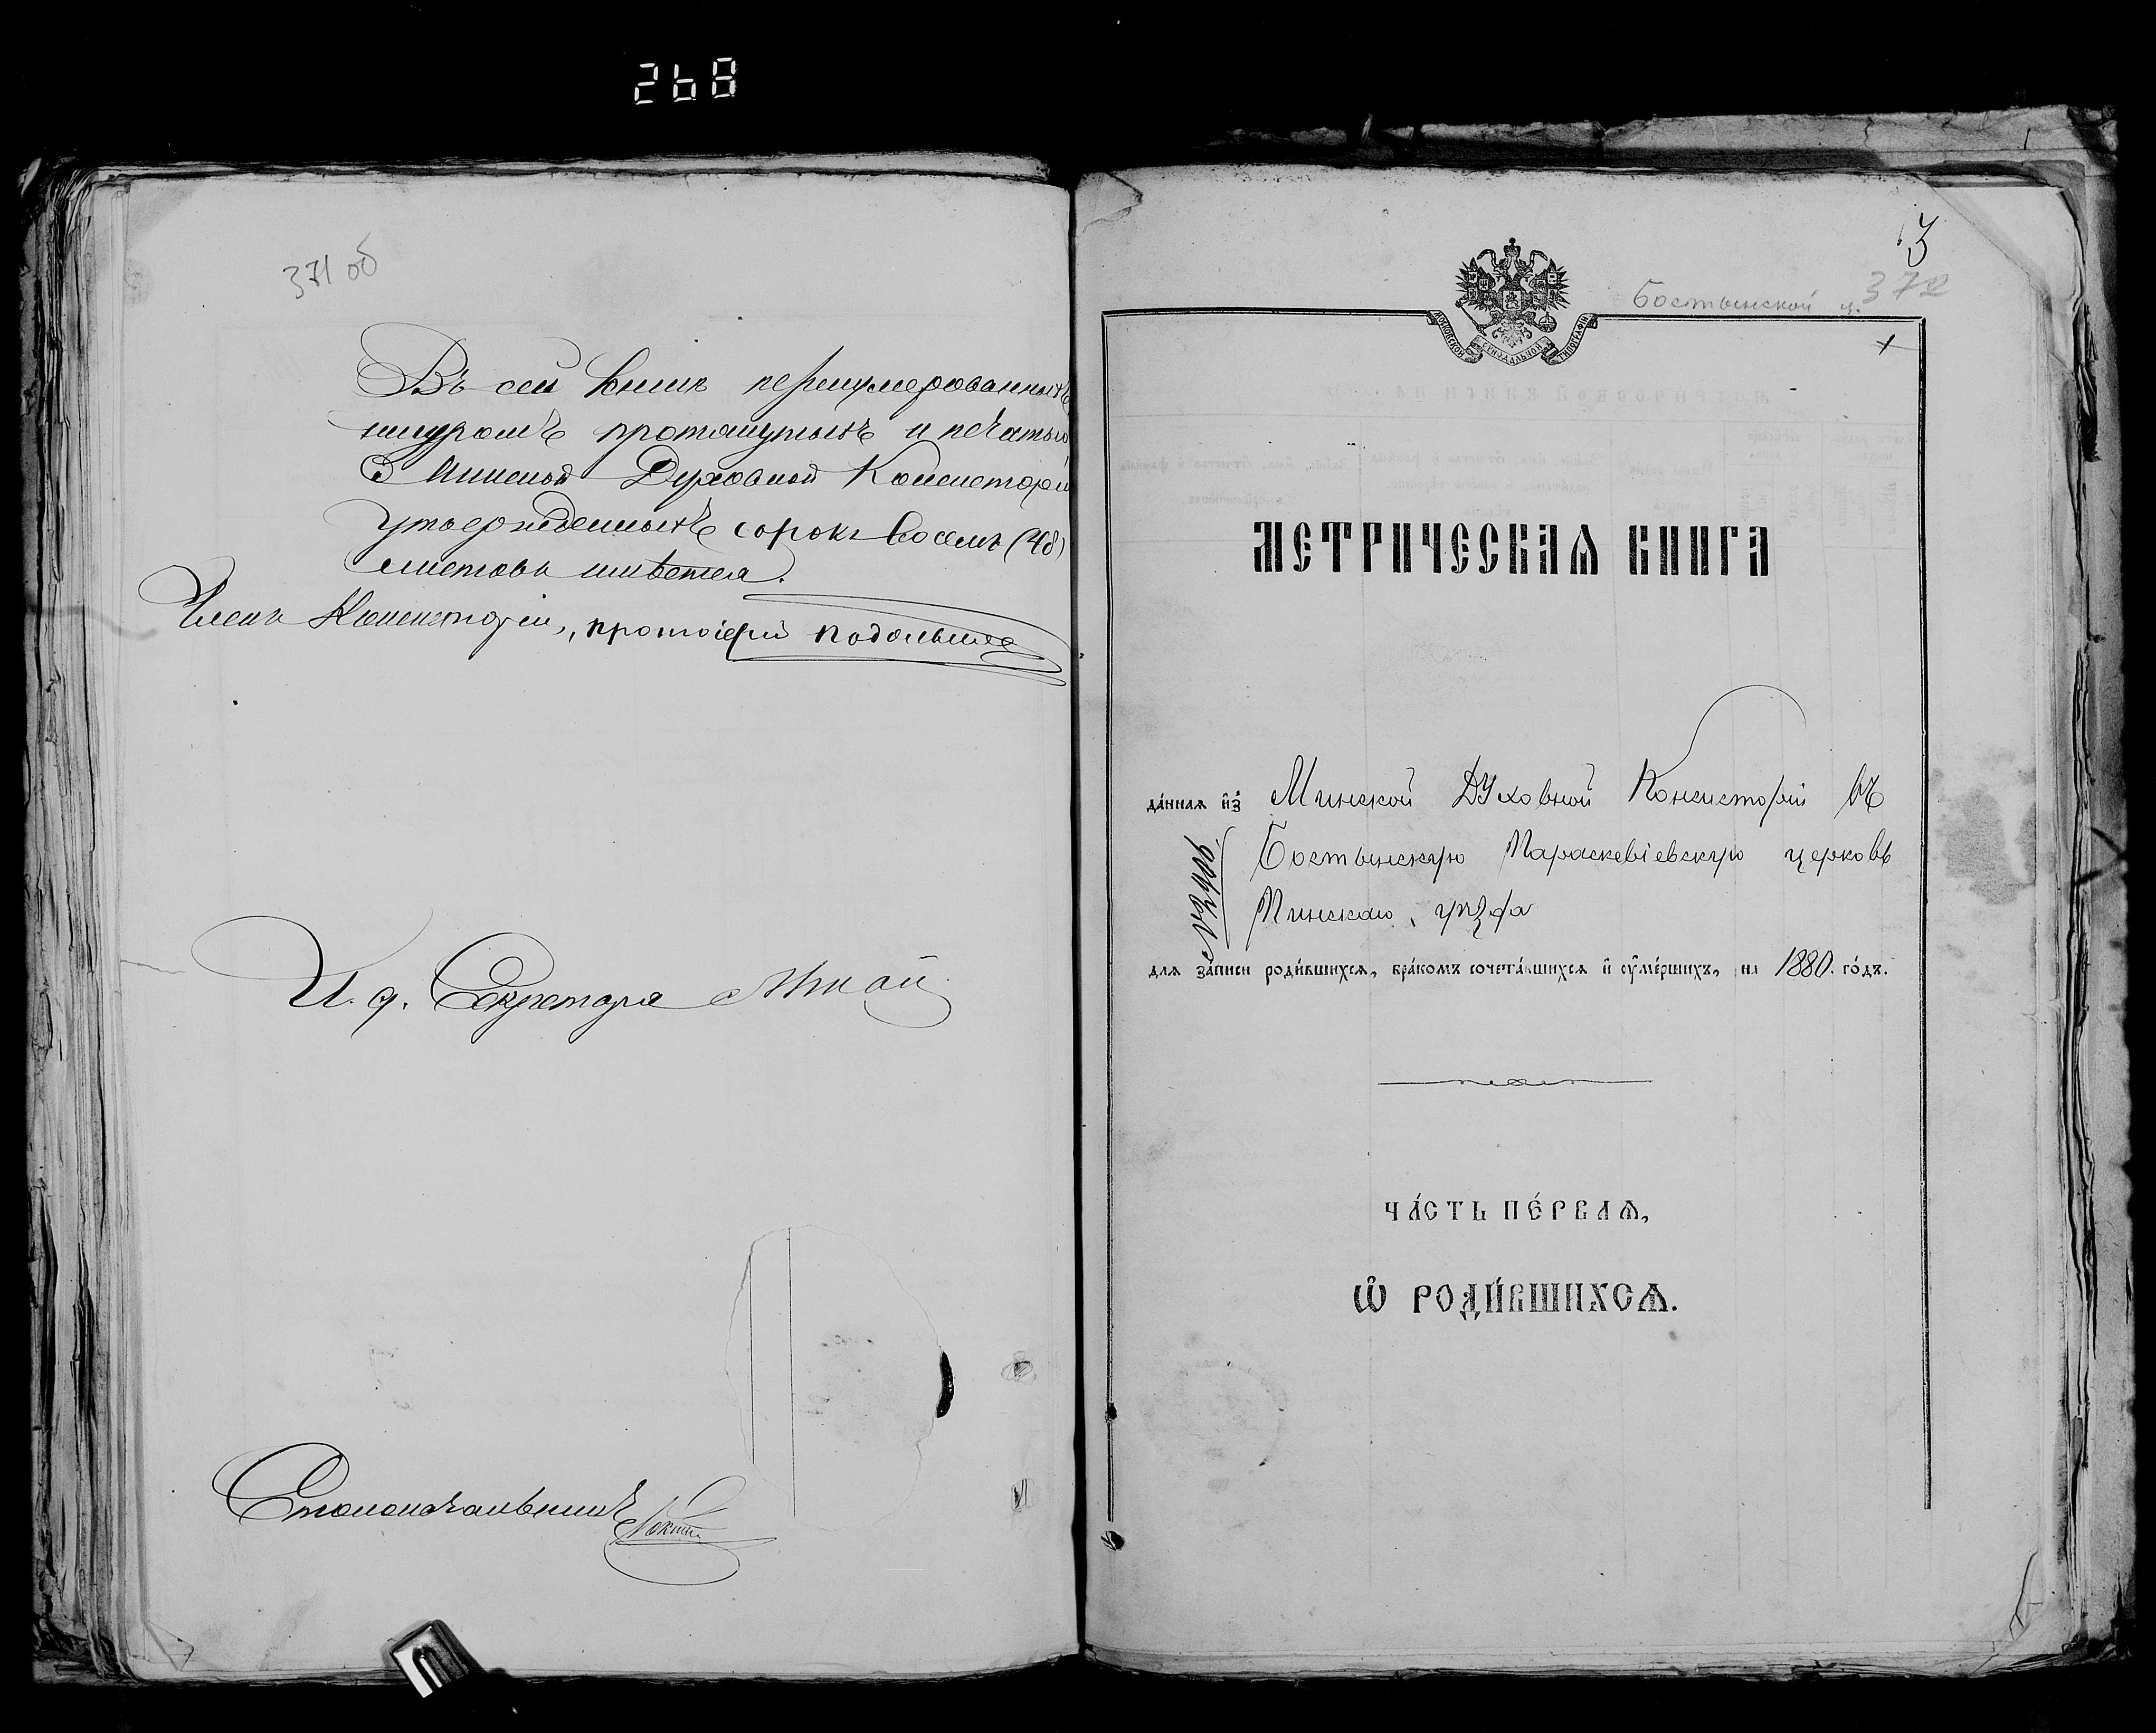 268
371 об
Въ сей книгѣ перенумерованныхъ
шнуромъ протянутыхъ и печатью
Минской Духовной Консисторіи
утвержденныхъ сорокъ восемь (48)
листовъ имѣется.
Членъ Консисторіи, протоіерей
И. д. Секретаря
Столоначальникъ
3
Бостынской ц. 372
МОСКОВСКОЙ СѴНОДАЛЬНОЙ ТИПОГРАФІИ
МЕТРИЧЕСКАѦ КНИГА
да́ннаѧ и҆з̾ Минской Духовной Консисторіи въ
Бостынскую Параскевіевскую церковь
Пинскаго уѣзда
длѧ за́писи роди́вшихсѧ, бра́комъ сочета́вшихсѧ и҆ ᲂу҆ме́ршихъ, на 1880. го́дъ.
ЧА́СТЬ ПЕ́РВАѦ,
Ѡ҆ РОДИ́ВШИХСѦ.